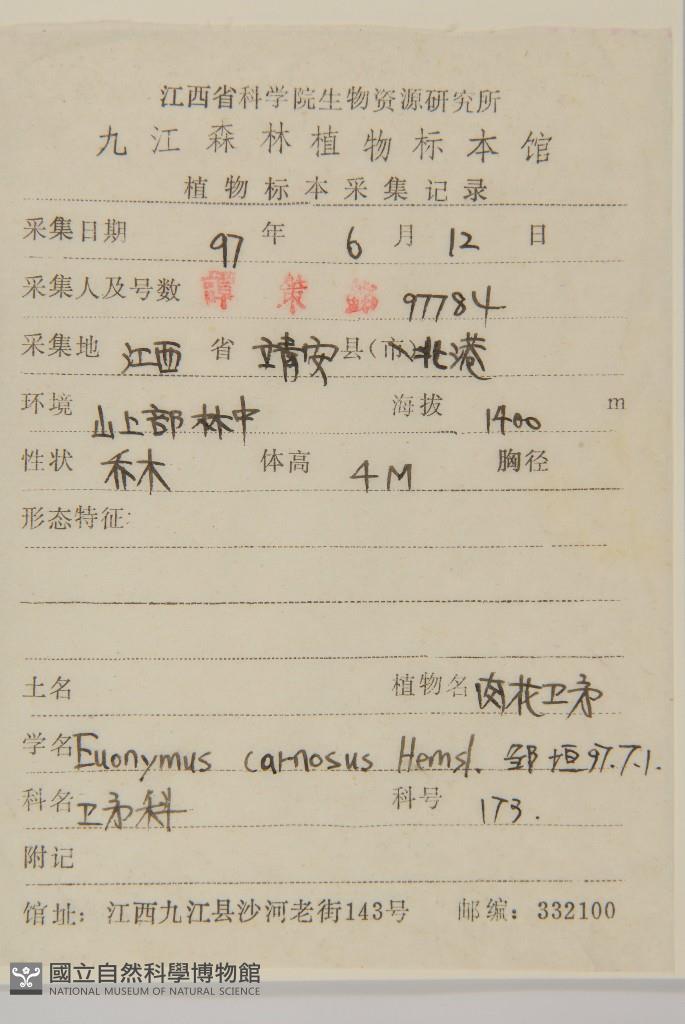 江西省科学院生物资源研究所
九江森林植物标本馆
植物标本采集记录
采集日期 97 年 6 月 12 日
采集人及号数 譚策銘 97784
采集地 江西 省 靖安 县(市) 北港
环境 山上部林中 海拔 1400 m
性状 乔木 体高 4M 胸径
形态特征:
土名 植物名 肉花卫矛
学名 Euonymus carnosus Hemsl. 邹垣 97.7.1.
科名 卫矛科 科号 173.
附记
馆址: 江西九江县沙河老街143号 邮编: 332100
國立自然科學博物館
NATIONAL MUSEUM OF NATURAL SCIENCE